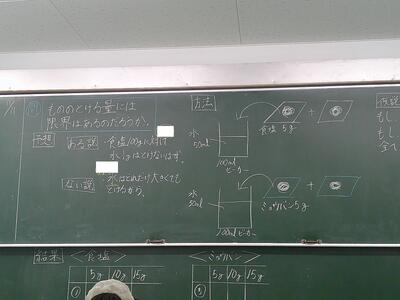 問 もののとける量には
限界はあるのだろうか。
予想
ある説・食塩100gに対して
水1gはとけないはず。
ない説・水はどれだけ大きくても
とけるから。
方法
水
50ml
100ml
ビーカー
食塩 5g
+
水
50ml
100mlビーカー
ミョウバン5g
+
仮説
もし
もし
全て
結果 <食塩>
5g 10g 15g
①
<ミョウバン>
5g 10g 15g